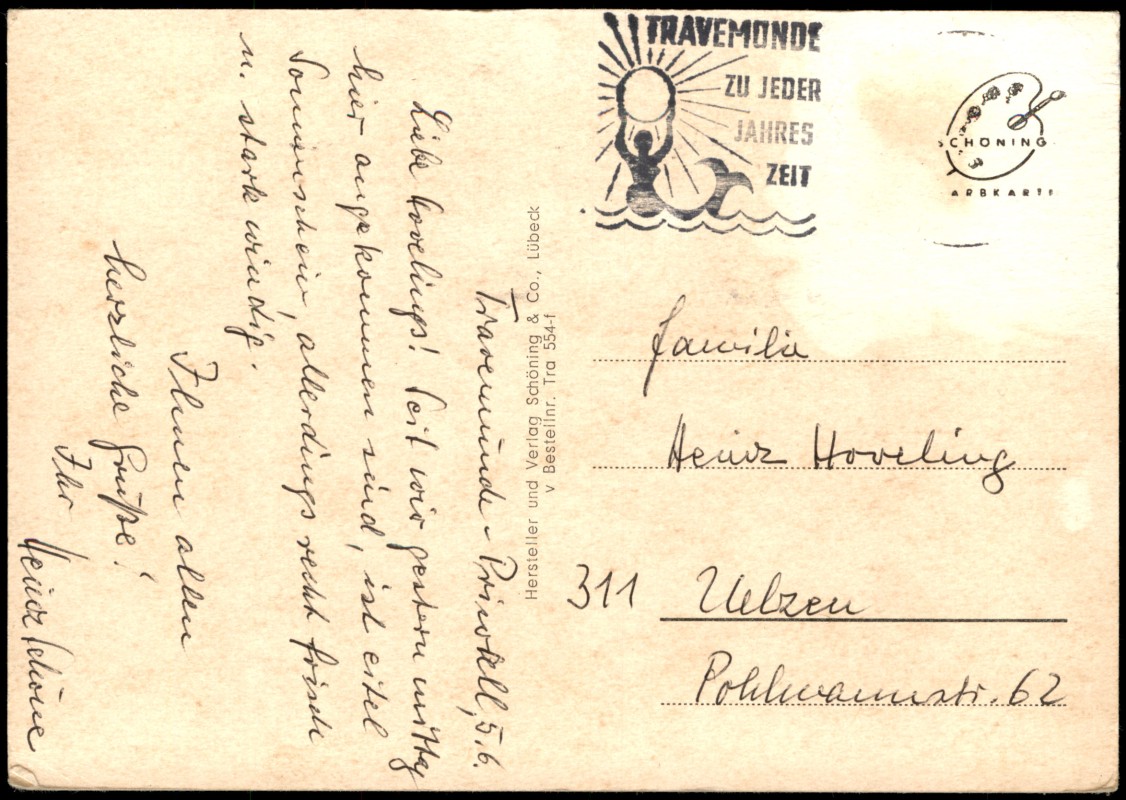 Travemünde-Priwall, 5.6.
Liebe Hovelings! Seit wir gestern mittag
hier angekommen sind, ist eitel
Sonnenschein, allerdings recht frisch
u. stark windig.
Ihnen allen
herzliche Grüße!
Ihr
Heinz Schöne
Hersteller und Verlag Schöning & Co., Lübeck
v Bestellnr. Tra 554-f
TRAVEMÜNDE
ZU JEDER
JAHRES
ZEIT
SCHÖNING
ARBKARTE
Familie
Heinz Hoveling
311 Uelzen
Pohlmannstr. 62